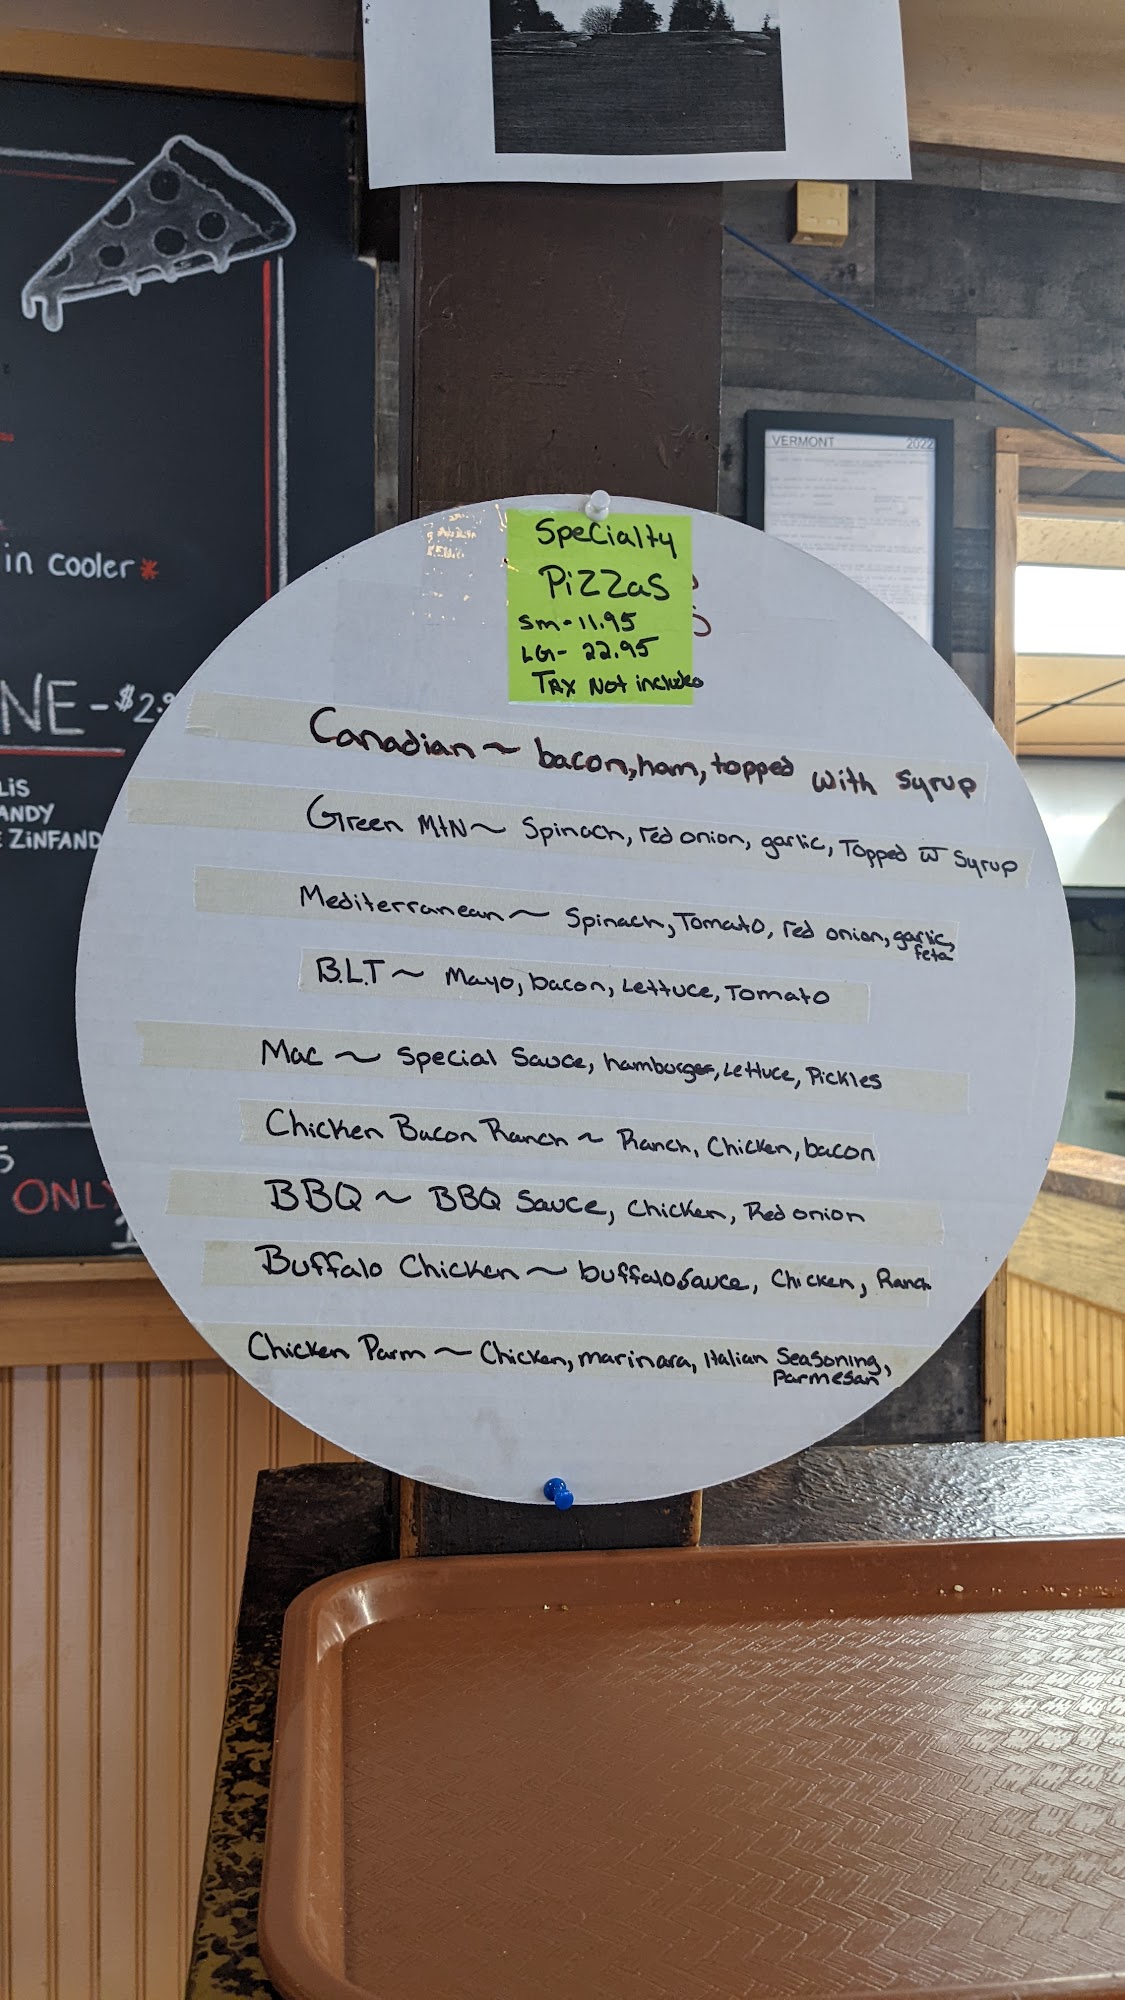 VERMONT 2022
in cooler*
NE-$2.9
LiS
ANDY
E ZiNFAND
5
ONLY
Specialty
Pizzas
sm-11.95
LG- 22.95
TAX Not included
Canadian ~ bacon, ham, topped with syrup
Green Mtn ~ Spinach, red onion, garlic, Topped w̅ Syrup
Mediterranean ~ Spinach, Tomato, red onion, garlic,
feta
B.L.T ~ Mayo, bacon, Lettuce, Tomato
Mac ~ Special Sauce, hamburger, Lettuce, Pickles
Chicken Bacon Ranch ~ Ranch, Chicken, bacon
BBQ ~ BBQ Sauce, Chicken, Red onion
Buffalo Chicken ~ buffalo sauce, Chicken, Ranch
Chicken Parm ~ Chicken, marinara, Italian Seasoning,
Parmesan